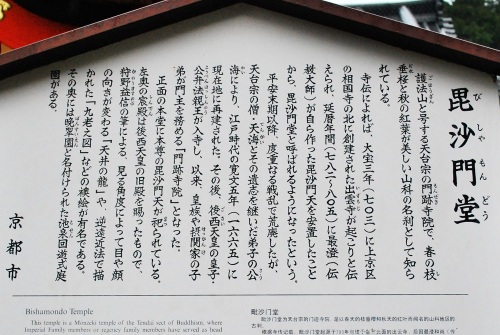 毘沙門堂
びしゃもんどう
護法山と号する天台宗の門跡寺院で、春の枝
垂桜と秋の紅葉が美しい山科の名刹として知ら
れている。
寺伝によれば、大宝三年(七〇三)に上京区
の相国寺の北に創建された出雲寺が起こりと伝
えられ、延暦年間(七八二〜八〇五)に最澄(伝
教大師)が自ら作った毘沙門天を安置したこと
から、毘沙門堂と呼ばれるようになったという。
平安末期以降、度重なる戦乱で荒廃したが、
天台宗の僧 天海とその遺志を継いだ弟子の公
海により、江戸時代の寛文五年(一六六五)に
現在地に再建された。その後、後西天皇の皇子・
公弁法親王が入寺し、以来、皇族や摂関家の子
弟が門主を務める「門跡寺院」となった。
正面の本堂に本尊の毘沙門天が祀られている。
左奥の宸殿は後西天皇の旧殿を賜ったもので、
狩野益信の筆による、見る角度によって目や顔
の向きが変わる「天井の龍」や、逆遠近法で描
かれた「九老之図」などの襖絵が有名である。
その奥には晩翠園と名付けられた池泉回遊式庭
園がある。
京都市
Bishamondo Temple
This temple is a Monzeki temple of the Tendai sect of Buddhism, where
Imperial Family members or regency family members have served as head
毗沙门堂